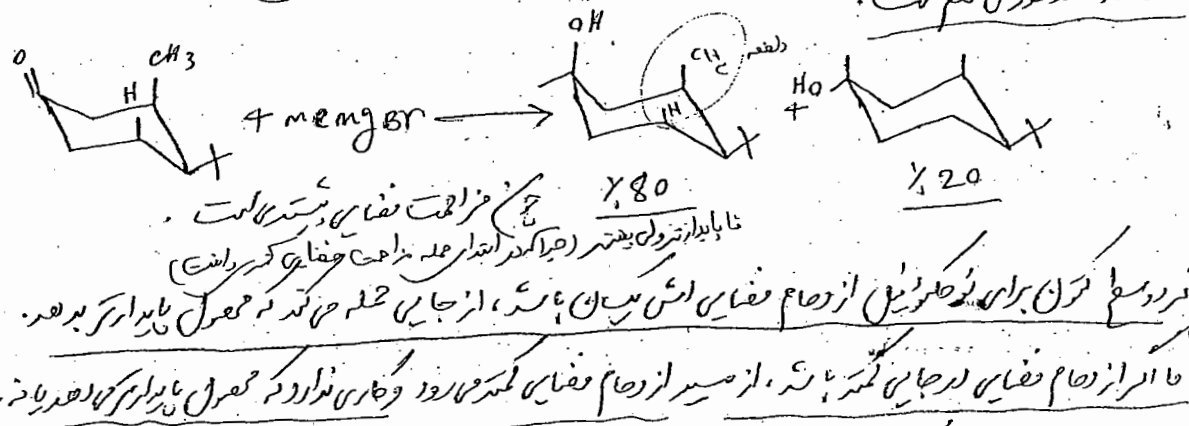 OH
O
CH3
H
CH3
دافعه
HO
H
+ memgBr
+
%80
%20
چون مزاحمت فضایی بیشتری است.
ناپایدارتر ولی بیشتر (چرا که در ابتدای حمله مزاحمت فضایی کمتری داشت)
اگر دو سطح کتون برای نوکلئوفیل ازدحام فضایی اش یکسان باشد، از جایی حمله می کند که محصول پایدارتر بدهد.
اما اگر ازدحام فضایی در جایی کمتر باشد، از مسیر ازدحام فضایی کمتر می رود و کاری ندارد که محصول پایدارتر می دهد یا نه.